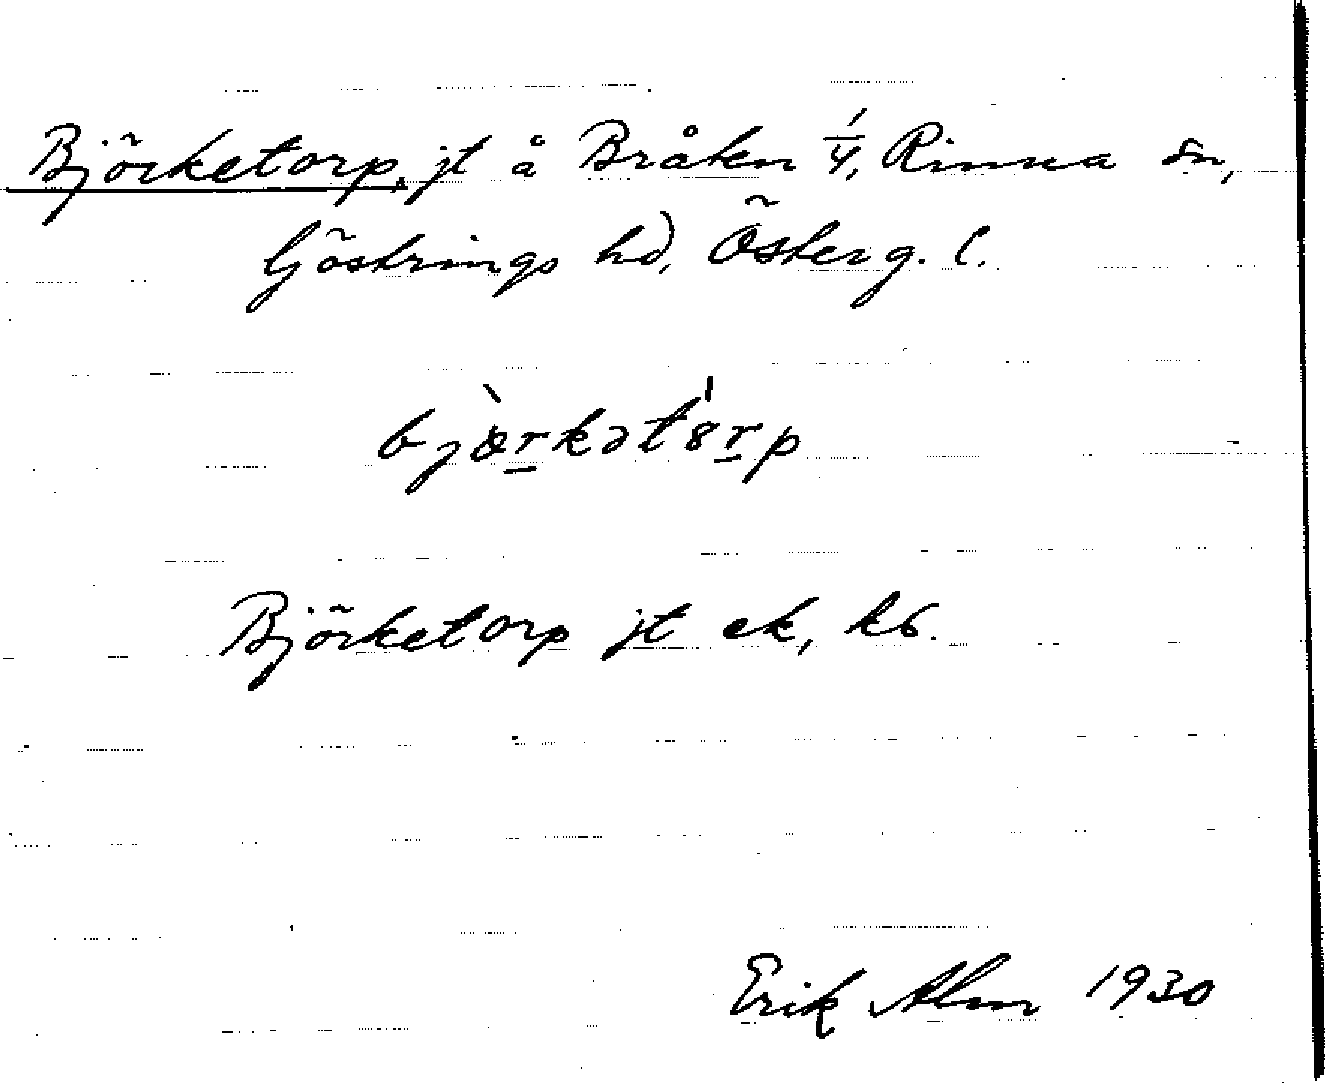 Björketorp, jt å Bråten 1/4, Rinna sn,
Göstrings hd, Österg. l.
bjærkət8rp
Björketorp jt ek, kb.
Erik Alm 1930